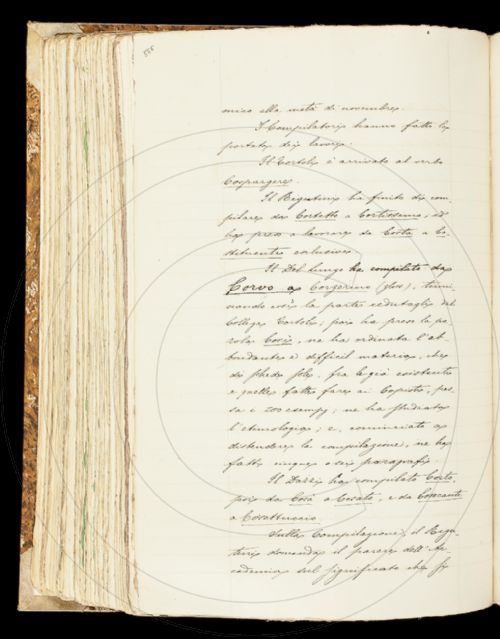 556
mica alla metà di novembre.
I Compilatori hanno fatto le
portate dei lavori.
Il Tortoli è arrivato al verbo
Cospargere.
Il Rigutini ha finito di com-
pilare da Cortetto a Cortissimo, ed
ha preso a lavorare da Costa a Co-
stituente esclusive.
Il Del Lungo ha compilato da
Corvo a Corzerino (glos), termi-
nando così la parte redatta del
Collega Tortoli; poi ha preso la pa-
rola Così, ne ha ordinata l'ab-
bondante e difficil materia, che
di schede sole, fra le già esistenti
e quelle fatte fare ai Copisti, pas-
sa i 200 esempj; ne ha studiato
l'etimologia; e, cominciata a
distendere la compilazione, ne ha
fatti cinque o sei paragrafi.
Il Dazzi ha compilato Corto,
poi da Cosa a Cosato, e da Coscante
a Cosattuccio.
Sulla Compilazione, il Rigu-
tini domanda il parere dell'Ac-
cademia sul significato che si